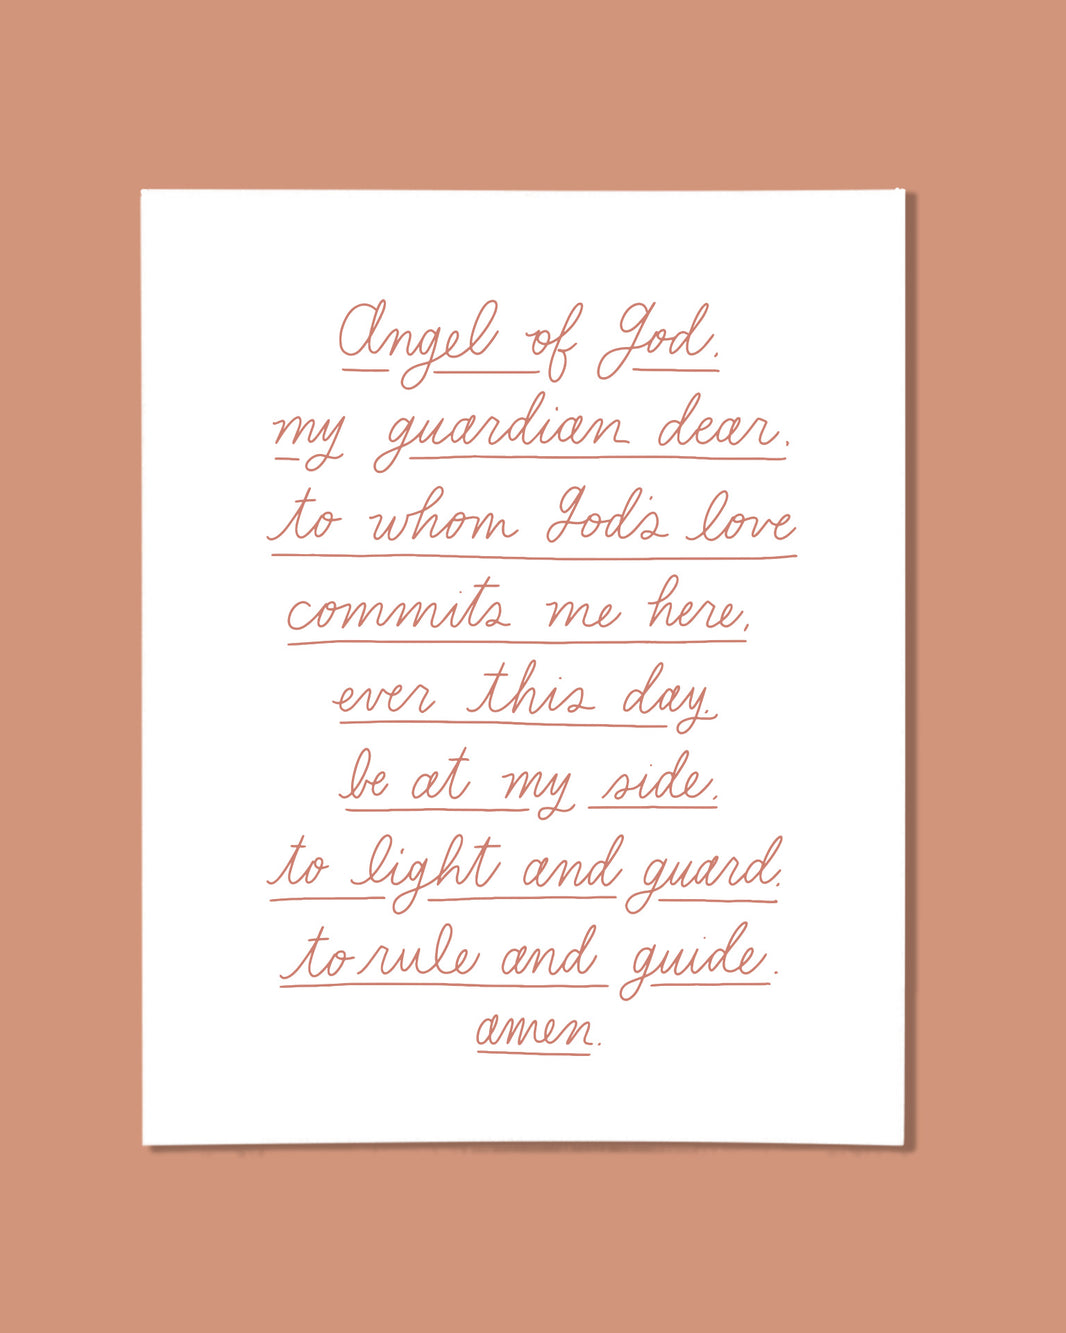 Angel of God.
my guardian dear.
to whom God's love
commits me here,
ever this day.
be at my side.
to light and guard.
to rule and guide.
amen.